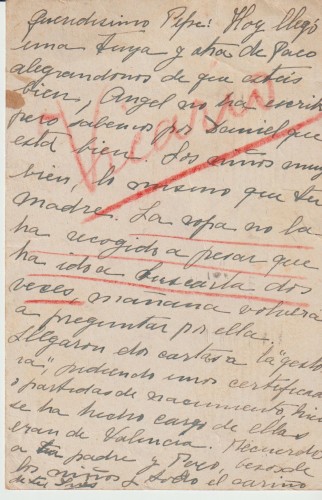 Queridisimo Pepe: Hoy llegó
una tuya y otra de Paco
alegrandonos de que esteis
bien, Angel no ha escrito
pero sabemos por Daniel que
está bien. Los niños muy
bien, lo mismo que tu
madre. La ropa no la
ha recogido a pesar que
ha ido a buscarla dos
veces, mañana volverá
a preguntar por ella.
Llegaron dos cartas a la "gesto
ra", pidiendo unos certifica
o partidas de nacimiento,
se ha hecho cargo de ellas
eran de Valencia. Recuerdos
a tu padre y Pepe, besos de
los niños y todo el cariño
de tu